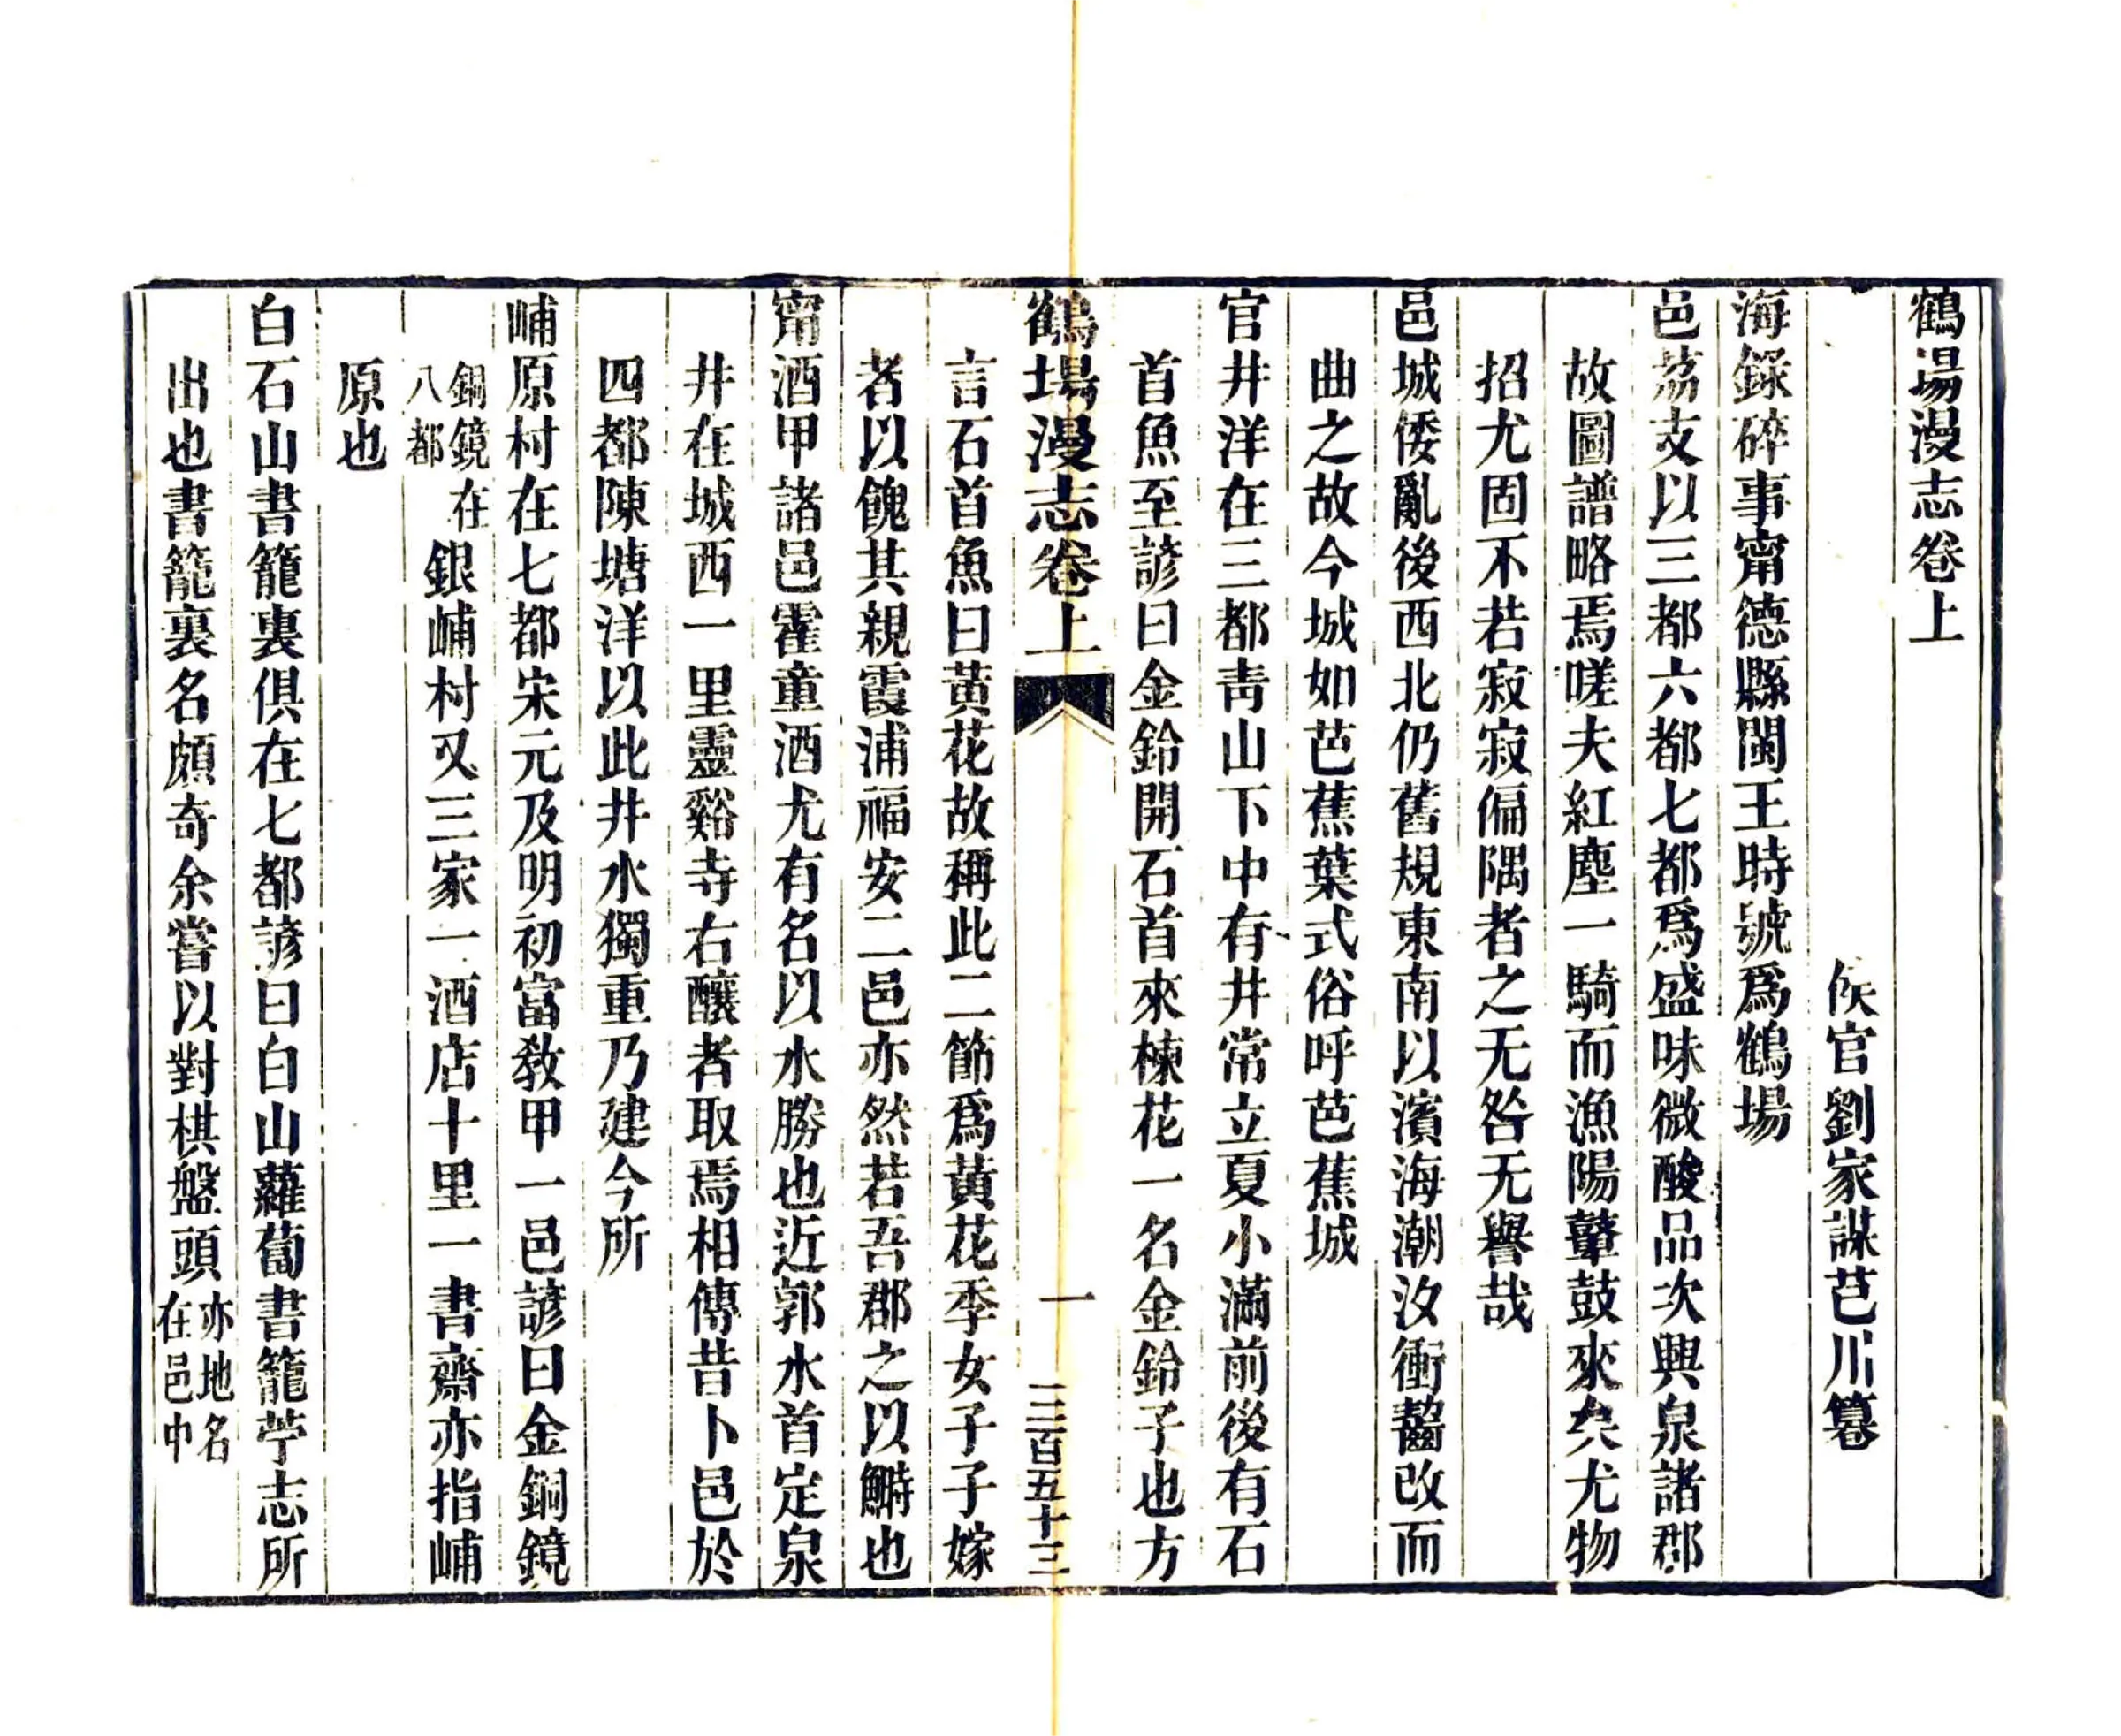 鶴場漫志卷上
侯官劉家謀芑川篹
海錄碎事甯德縣閩王時號爲鶴場
邑荔支以三都六都七都爲盛味微酸品次興泉諸郡
故圖譜略焉嗟夫紅塵一騎而漁陽鼙鼓來矣尤物
招尤固不若寂寂偏隅者之无咎无譽哉
邑城倭亂後西北仍舊規東南以濱海潮汐衝齧改而
曲之故今城如芭蕉葉式俗呼芭蕉城
官井洋在三都青山下中有井常立夏小滿前後有石
首魚至諺曰金鈴開石首來楝花一名金鈴子也方
鶴場漫志卷上
一
三百五十三
言石首魚曰黃花故稱此二節爲黃花季女子子嫁
者以餽其親霞浦福安二邑亦然若吾郡之以鰣也
甯酒甲諸邑霍童酒尤有名以水勝也近郭水首定泉
井在城西一里靈谿寺右釀者取焉相傳昔卜邑於
四都陳塘洋以此井水獨重乃建今所
峬原村在七都宋元及明初富敎甲一邑諺曰金銅鏡
銅鏡在八都銀峬村又三家一酒店十里一書齋亦指峬
原也
白石山書籠裏俱在七都諺曰白山蘿蔔書籠苧志所
出也書籠裏名頗奇余嘗以對棋盤頭亦地名在邑中